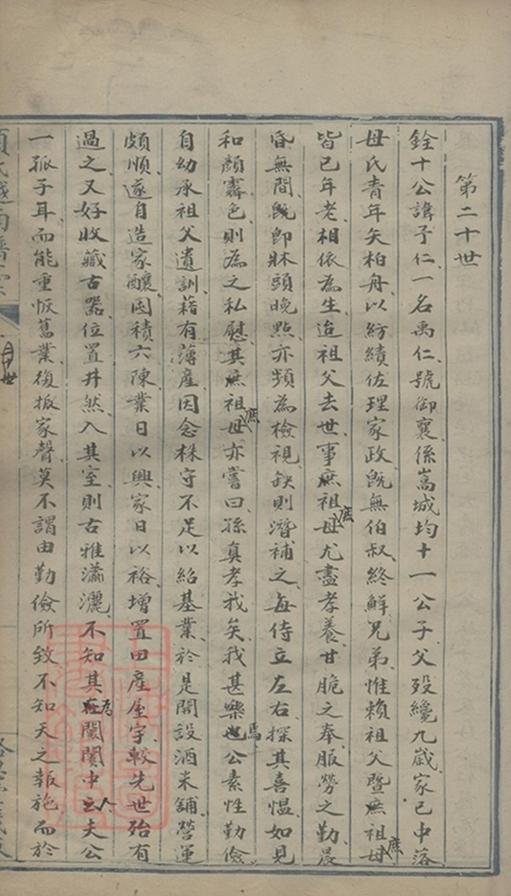 第二十世
銓十公諱予仁一名禹仁號御襄係嵩城均十一公子父歿纔九歲家已中落
母氏青年矢柏舟以紡績佐理家政既無伯叔終鮮兄弟惟賴祖父暨庶祖母
皆已年老相依為生迨祖父去世事庶祖母尤盡孝養甘脆之奉服勞之勤晨
昏無間既卽牀頭晚點亦頻為檢視缺則潛補之每侍立左右探其喜慍如見
和顏霽色則為之私慰其庶祖母亦嘗曰孫真孝我矣我甚樂焉公素性勤儉
自幼承祖父遺訓藉有薄產因念株守不足以紹基業於是開設酒米舖營運
頗順遂自造家釀囷積六陳業日以興家日以裕增置田產屋宇較先世殆有
過之又好收藏古器位置井然入其室則古雅瀟灑不知其為闤闠中人夫公
一孤子耳而能重恢舊業復振家聲莫不謂由勤儉所致不知天之報施而於